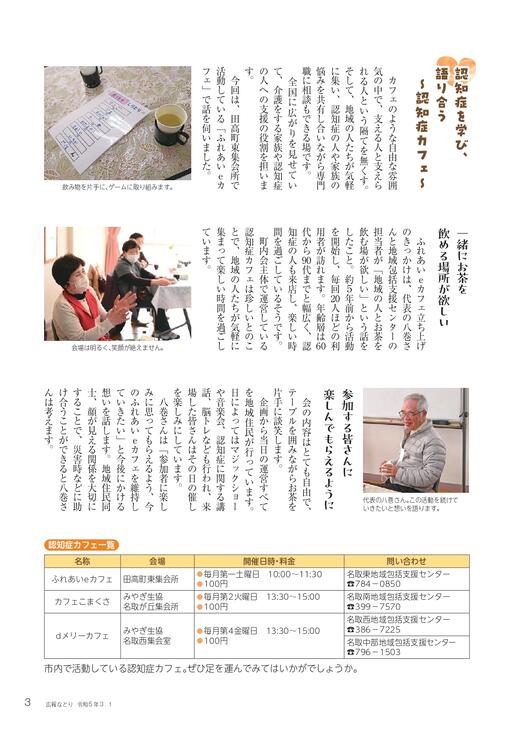 認知症を学び、
語り合う
～認知症カフェ～
カフェのような自由な雰囲
気の中で、支える人と支えら
れる人という隔てを無くす。
そして、地域の人たちが気軽
に集い、認知症の人や家族の
悩みを共有し合いながら専門
職に相談もできる場です。
全国に広がりを見せてい
て、介護をする家族や認知症
の人への支援の役割を担いま
す。
今回は、田高町東集会所で
活動している「ふれあいeカ
フェ」で話を伺いました。
飲み物を片手に、ゲームに取り組みます。
一緒にお茶を
飲める場所が欲しい
ふれあいeカフェ立ち上げ
のきっかけは、代表の八巻さ
んと地域包括支援センターの
担当者が「地域の人とお茶を
飲む場が欲しい」という話を
したこと。約5年前から活動
を開始し、毎回20人ほどの利
用者が訪れます。年齢層は60
代から90代までと幅広く、認
知症の人も来店し、楽しい時
間を過ごしているそうです。
町内会主体で運営している
認知症カフェは珍しいとのこ
とで、地域の人たちが気軽に
集まって楽しい時間を過ごし
ています。
会場は明るく、笑顔が絶えません。
参加する皆さんに
楽しんでもらえるように
会の内容はとても自由で、
テーブルを囲みながらお茶を
片手に談笑します。
企画から当日の運営すべて
を地域住民が行っています。
日によってはマジックショー
や音楽会、認知症に関する講
話、脳トレなども行われ、来
場した皆さんはその日の催し
を楽しみにしています。
八巻さんは「参加者に楽し
みに思ってもらえるよう、今
のふれあいeカフェを維持し
ていきたい」と今後にかける
想いを話します。地域住民同
士、顔が見える関係を大切に
することで、災害時などに助
け合うことができると八巻さ
んは考えます。
代表の八巻さん。この活動を続けて
いきたいと想いを語ります。
認知症カフェ一覧
名称 会場 開催日時・料金 問い合わせ
ふれあいeカフェ 田高町東集会所 ●毎月第一土曜日 10:00～11:30 ●100円 名取東地域包括支援センター ☎784－0850
カフェこまくさ みやぎ生協 名取が丘集会所 ●毎月第2火曜日 13:30～15:00 ●100円 名取南地域包括支援センター ☎399－7570
dメリーカフェ みやぎ生協 名取西集会室 ●毎月第4金曜日 13:30～15:00 ●100円 名取西地域包括支援センター ☎386－7225
名取中部地域包括支援センター ☎796－1503
市内で活動している認知症カフェ。ぜひ足を運んでみてはいかがでしょうか。
3 広報なとり 令和5年3．1